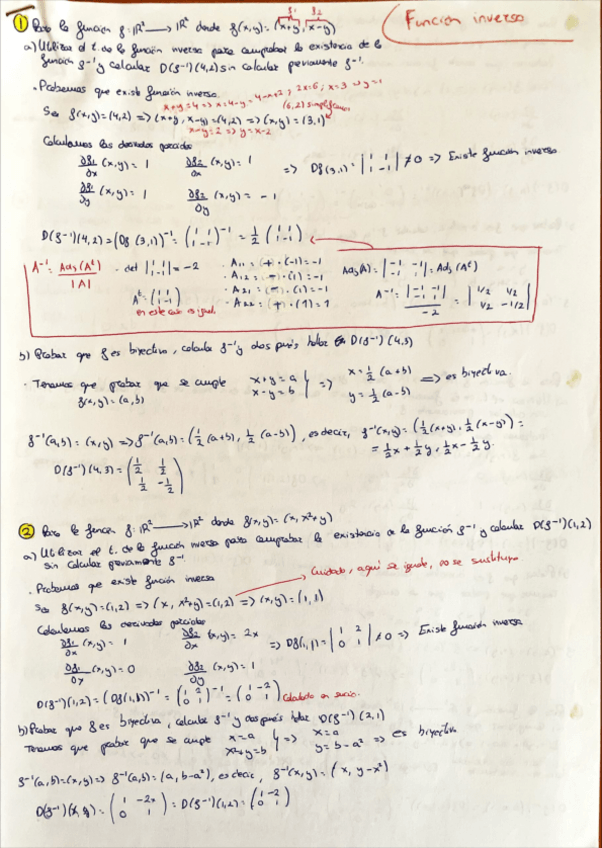 Función inversa
① Para la función g: ℝ² → ℝ² donde g(x,y) = (x+y, x-y)
g₁ g₂
a) Utilizar el t. de la función inversa para comprobar la existencia de la
función g⁻¹ y calcular D(g⁻¹)(4,2) sin calcular previamente g⁻¹.
· Probemos que existe función inversa.
x+y=4 => x=4-y
Sea g(x,y)=(4,2) => (x+y, x-y)=(4,2) => (x,y)=(3,1)
x-y=2 => y=x-2
Calculamos las derivadas parciales
∂g₁/∂x (x,y) = 1 ∂g₂/∂x (x,y) = 1 => Dg(3,1) = |1 1; 1 -1| ≠ 0 => Existe función inversa
∂g₁/∂y (x,y) = 1 ∂g₂/∂y (x,y) = -1
D(g⁻¹)(4,2) = (Dg(3,1))⁻¹ = (1 1; 1 -1)⁻¹ = 1/2 (1 1; 1 -1)
A⁻¹ = Adj(Aᵗ)/|A| · det |1 1; 1 -1| = -2 · A₁₁ = (+) · (-1) = -1 Adj(A) = |-1 -1; -1 1| = Adj(Aᵗ)
· A₁₂ = (-) · (1) = -1
Aᵗ = (1 1; 1 -1) · A₂₁ = (-) · (1) = -1 A⁻¹ = |-1 -1; -1 1| / -2 = |1/2 1/2; 1/2 -1/2|
en este caso es igual. · A₂₂ = (+) · (1) = 1
b) Probar que g es biyectiva, calcular g⁻¹ y después, hallar D(g⁻¹)(4,3)
· Tenemos que probar que se cumple x+y=a => x=1/2 (a+b) => es biyectiva.
g(x,y)=(a,b) x-y=b y=1/2 (a-b)
g⁻¹(a,b)=(x,y) => g⁻¹(a,b) = (1/2 (a+b), 1/2 (a-b)), es decir, g⁻¹(x,y) = (1/2 (x+y), 1/2 (x-y)) =
= 1/2 x + 1/2 y, 1/2 x - 1/2 y.
D(g⁻¹)(4,3) = (1/2 1/2; 1/2 -1/2)
② Para la función g: ℝ² → ℝ² donde g(x,y) = (x, x²+y)
a) Utilizar el t. de la función inversa para comprobar la existencia de la función g⁻¹ y calcular D(g⁻¹)(1,2)
sin calcular previamente g⁻¹.
· Probemos que existe función inversa
Cuidado, aquí se iguala, no se sustituye
Sea g(x,y)=(1,2) => (x, x²+y)=(1,2) => (x,y)=(1,1)
Calculamos las derivadas parciales
∂g₁/∂x (x,y) = 1 ∂g₂/∂x (x,y) = 2x => Dg(1,1) = |1 2; 0 1| ≠ 0 => Existe función inversa
∂g₁/∂y (x,y) = 0 ∂g₂/∂y (x,y) = 1
D(g⁻¹)(1,2) = (Dg(1,1))⁻¹ = (1 2; 0 1)⁻¹ = (1 -2; 0 1) calculado en sucio.
b) Probar que g es biyectiva, calcular g⁻¹ y después hallar D(g⁻¹)(2,1)
Tenemos que probar que se cumple x=a => x=a => es biyectiva
x²+y=b y=b-a²
g⁻¹(a,b)=(x,y) => g⁻¹(a,b) = (a, b-a²), es decir, g⁻¹(x,y) = (x, y-x²)
D(g⁻¹)(x,y) = (1 -2x; 0 1) = D(g⁻¹)(1,2) = (1 -2; 0 1)